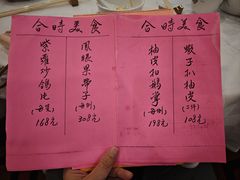 合時美食
鳳眼果帶子
(每例)
308元
紫蘿炒鴿片
(每隻)
168元
合時美食
蝦子扒柚皮
(二件)
108元
柚皮扣鵝掌
(每例)
198元